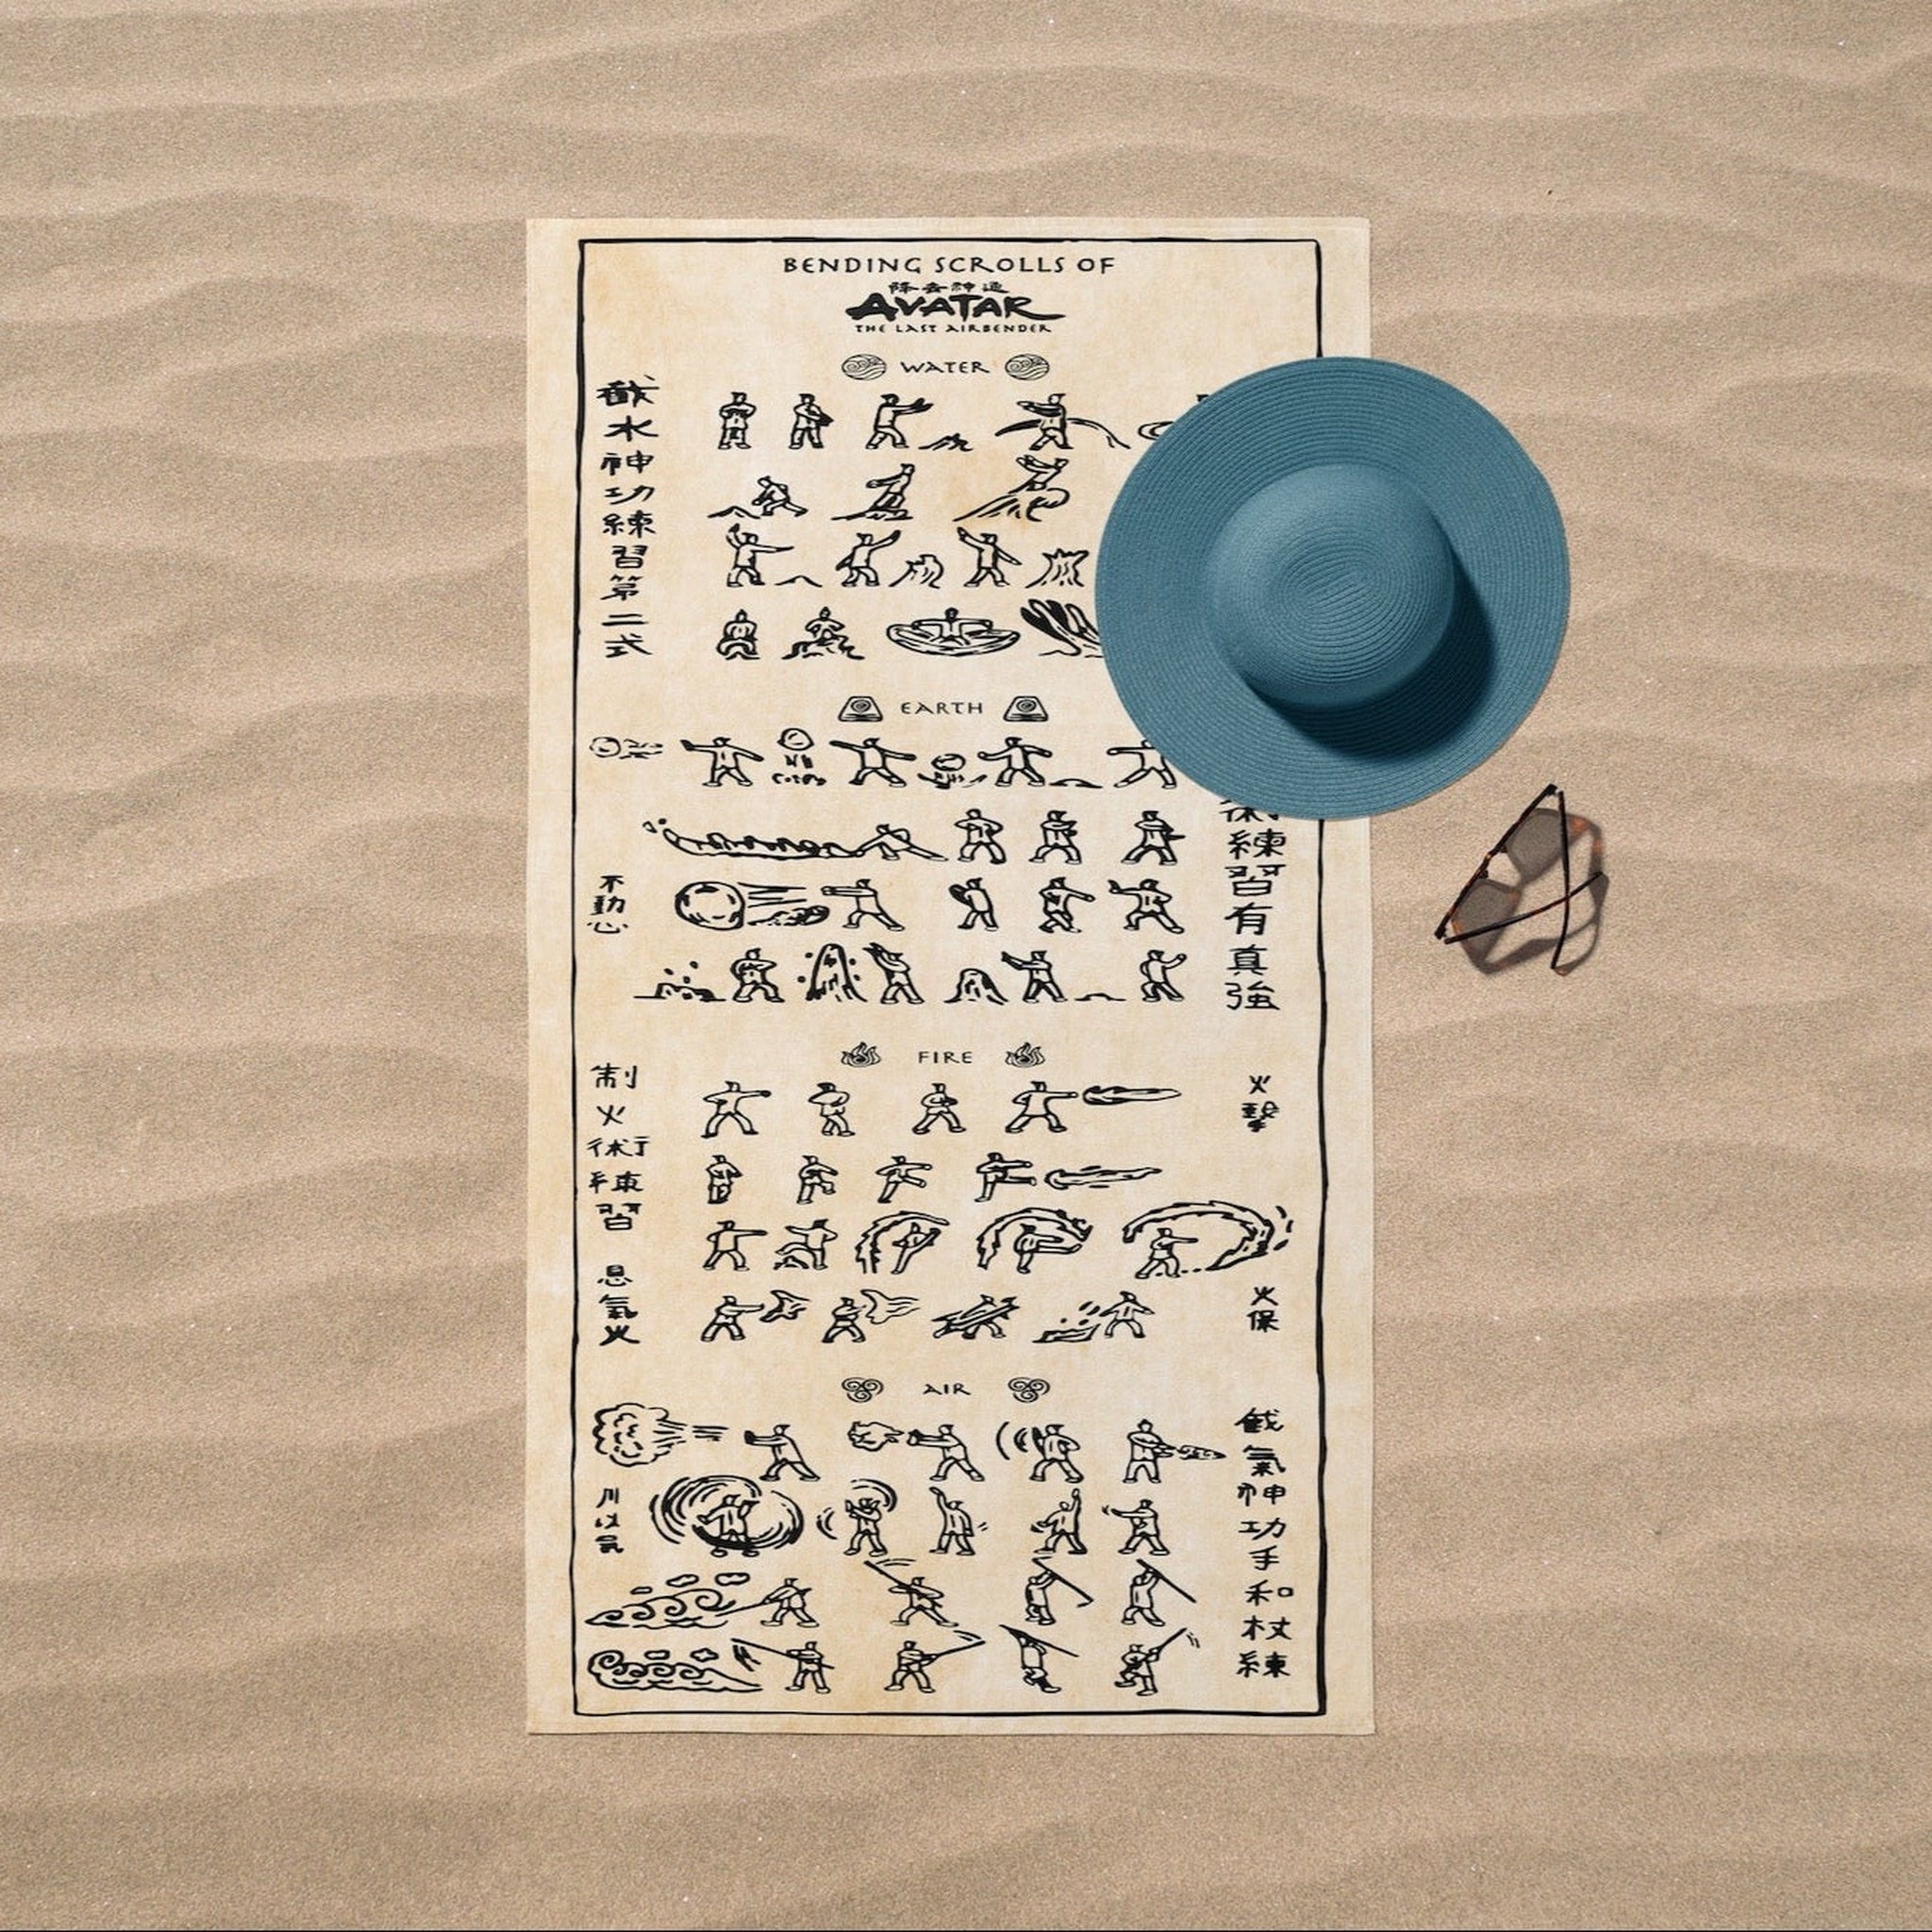 BENDING SCROLLS OF
降去神通
AVATAR
THE LAST AIRBENDER
WATER
截水神功練習第二式
EARTH
術練習有真強
不動心
FIRE
制火術練習
火擊
息氣火
火保
AIR
截氣神功手和杖練
川以氣